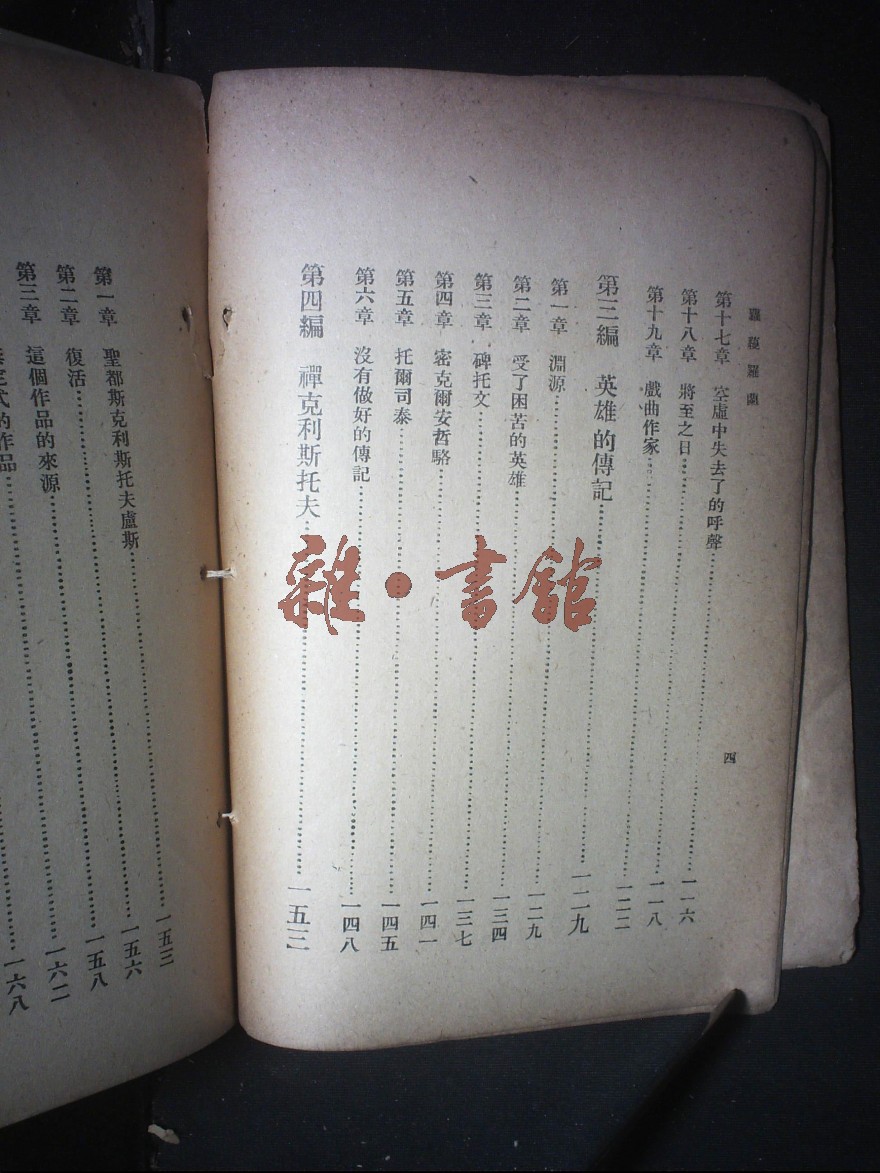 羅曼羅蘭
第十七章 空虛中失去了的呼聲……一一六
第十八章 將至之日……一一八
第十九章 戲曲作家……一二二
第三編 英雄的傳記……一二九
第一章 淵源……一二九
第二章 受了困苦的英雄……一三四
第三章 碑托文……一三七
第四章 密克爾安哲駱……一四一
第五章 托爾司泰……一四五
第六章 沒有做好的傳記……一四八
第四編 禪克利斯托夫……一五三
四
雜·書館
第一章 聖都斯克利斯托夫盧斯……一五三
第二章 復活……一五六
第三章 這個作品的來源……一五八
式的作品……一六二
一六八